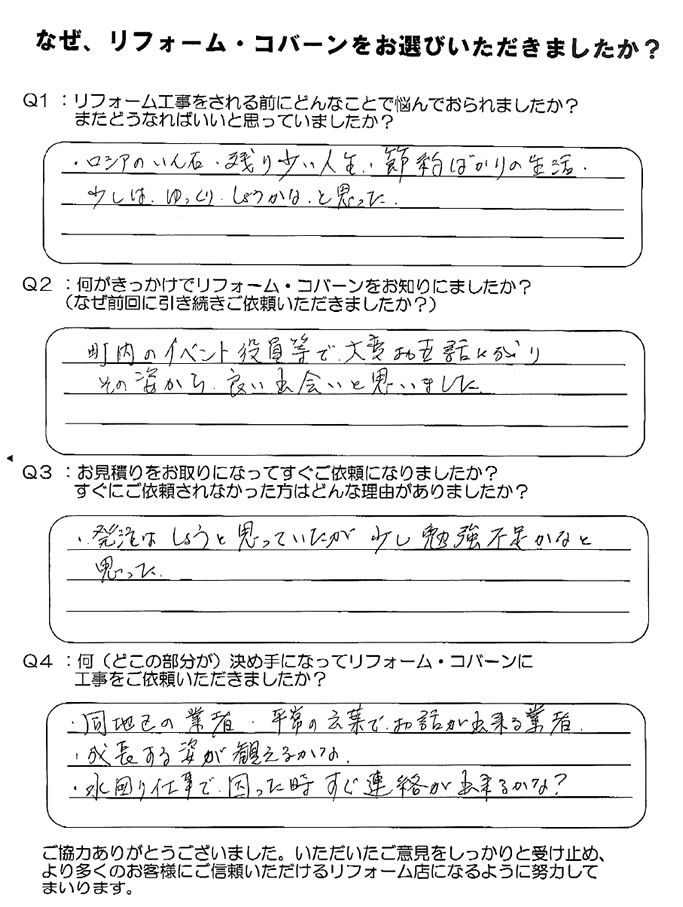 なぜ、リフォーム・コバーンをお選びいただきましたか？
Q1：リフォーム工事をされる前にどんなことで悩んでおられましたか？
またどうなればいいと思っていましたか？
・ロシアのいん石・残り少い人生・節約ばかりの生活・
少しは、ゆっくり、しょうかな、と思った。
Q2：何がきっかけでリフォーム・コバーンをお知りにましたか？
（なぜ前回に引き続きご依頼いただきましたか？）
町内のイベント役員等で、大変お世話になり
その姿から、良い出会いと思いました。
Q3：お見積りをお取りになってすぐご依頼になりましたか？
すぐにご依頼されなかった方はどんな理由がありましたか？
・発注はしようと思っていたが少し勉強不足かなと
思った。
Q4：何（どこの部分が）決め手になってリフォーム・コバーンに
工事をご依頼いただきましたか？
・同地区の業者・平常の言葉で、お話が出来る業者。
・成長する姿が観えるかな。
・水回り仕事で、困った時すぐ連絡が出来るかな？
ご協力ありがとうございました。いただいたご意見をしっかりと受け止め、
より多くのお客様にご信頼いただけるリフォーム店になるように努力して
まいります。